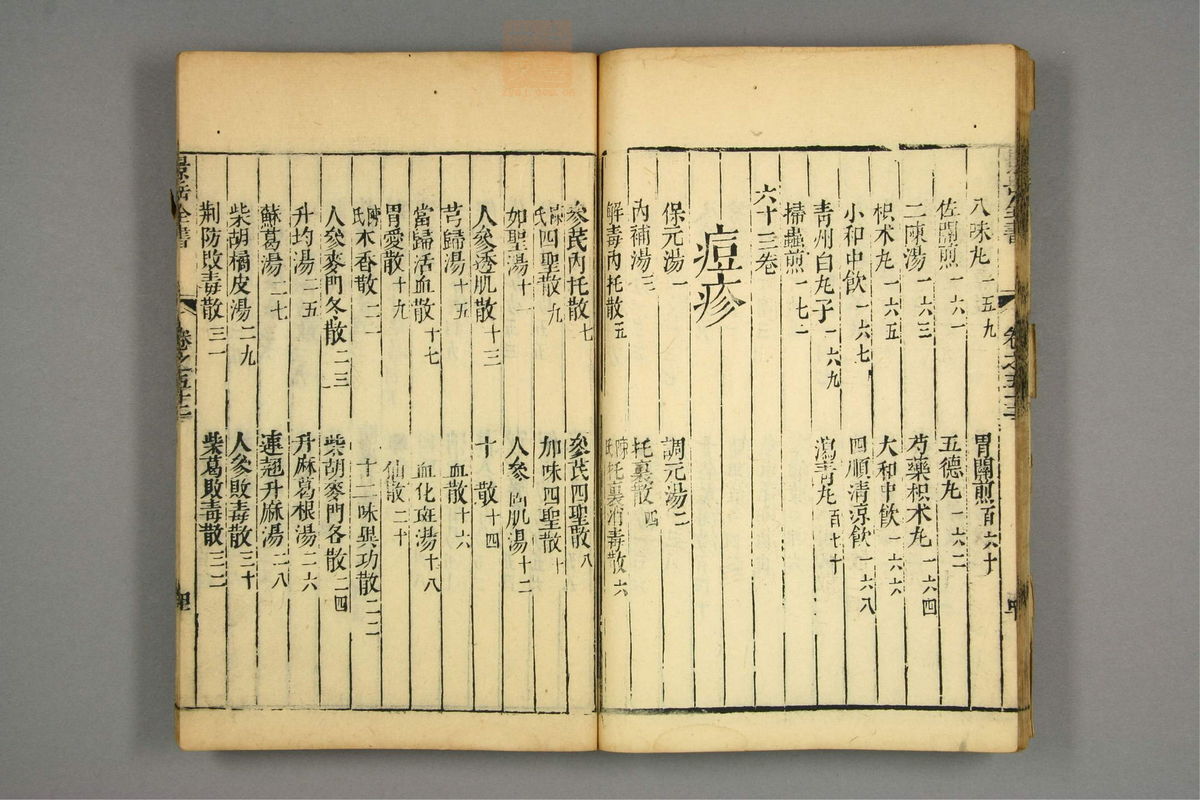 八味丸一五九 胃關煎百六十
佐關煎一六一 五德丸一六二
二陳湯一六三 芍藥枳朮丸一六四
枳朮丸一六五 大和中飲一六六
小和中飲一六七 四順清凉飲一六八
青州白丸子一六九 瀉青丸百七十
掃蟲煎一七二
六十三卷
痘疹
保元湯一 調元湯二
內補湯三 托裏散四
解毒內托散五 陳氏托裏消毒散六
參芪內托散七 參芪四聖散八
陳氏四聖散九 加味四聖散十
如聖湯十一 人參 肌湯十二
人參透肌散十三 十 散十四
芎歸湯十五 血散十六
當歸活血散十七 血化斑湯十八
胃愛散十九 仙散二十
陳氏木香散二一 十二味異功散二二
人參麥門冬散二三 柴胡麥門冬散二四
升均湯二五 升麻葛根湯二六
蘇葛湯二七 連翹升麻湯二八
柴胡橘皮湯二九 人參敗毒散三十
荆防敗毒散三一 柴葛敗毒散三二
景岳全書 卷之五十三